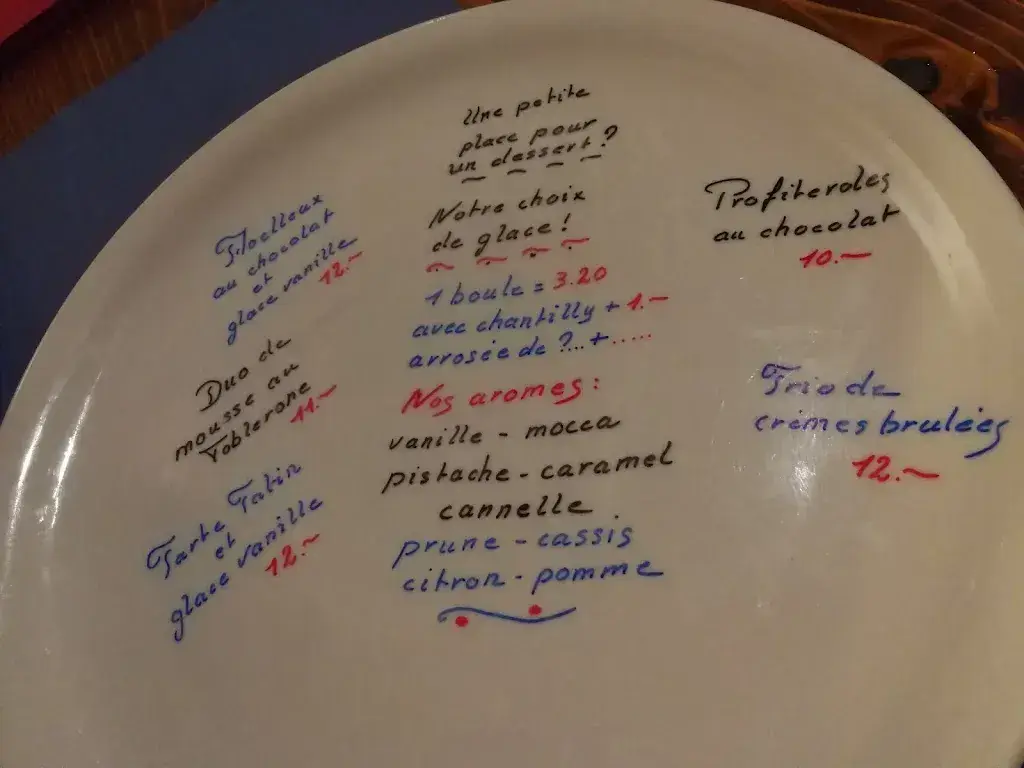 Une petite
place pour
un dessert?
Notre choix
de glace!
1 boule = 3.20
avec chantilly + 1.-
arrosée de ?... + .....
Nos aromes:
vanille - mocca
pistache - caramel
cannelle
prune - cassis
citron - pomme
Moelleux
au chocolat
et
glace vanille
12.-
Duo de
mousse au
Toblerone
11.-
Tarte Tatin
et
glace vanille
12.-
Profiteroles
au chocolat
10.-
Trio de
crèmes brulées
12.-